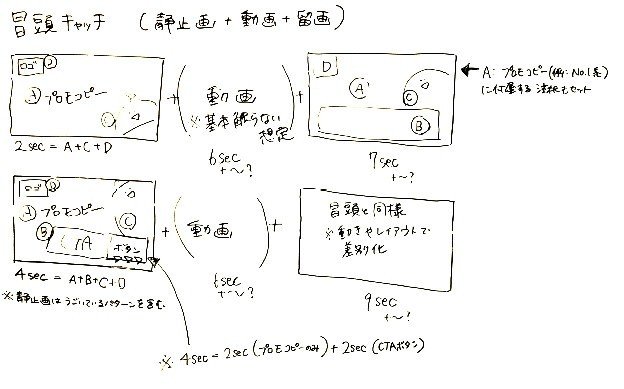 冒頭キャッチ (静止画+動画+留画)
ロゴ D
A プロモコピー
C
2sec = A+C+D
+
動画
※基本触らない
想定
6sec
+~?
+
D
A
C
B
7sec
+~?
← A: プロモコピー(例: No.1系)
に付属する注釈もセット
ロゴ D
A プロモコピー
C
B CTA ボタン
4sec = A+B+C+D
※静止画はうごいているパターンを含む
+
動画
6sec
+~?
+
冒頭と同様
※動きやレイアウトで
差別化
9sec
+~?
※ 4sec = 2sec (プロモコピーのみ) + 2sec (CTAボタン)